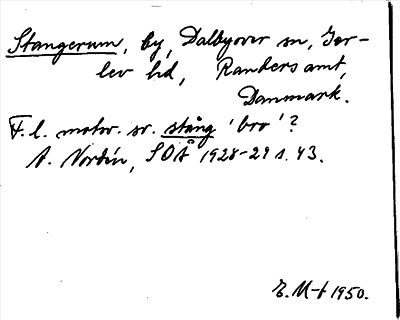 Stangerum, by, Dalbyover sn, Ger-
lev hd, Randers amt,
Danmark.
F. l. motsv. sv. stång 'bro'?
A. Nordén, SOÅ 1928-29 s. 43.
E. M-t 1950.